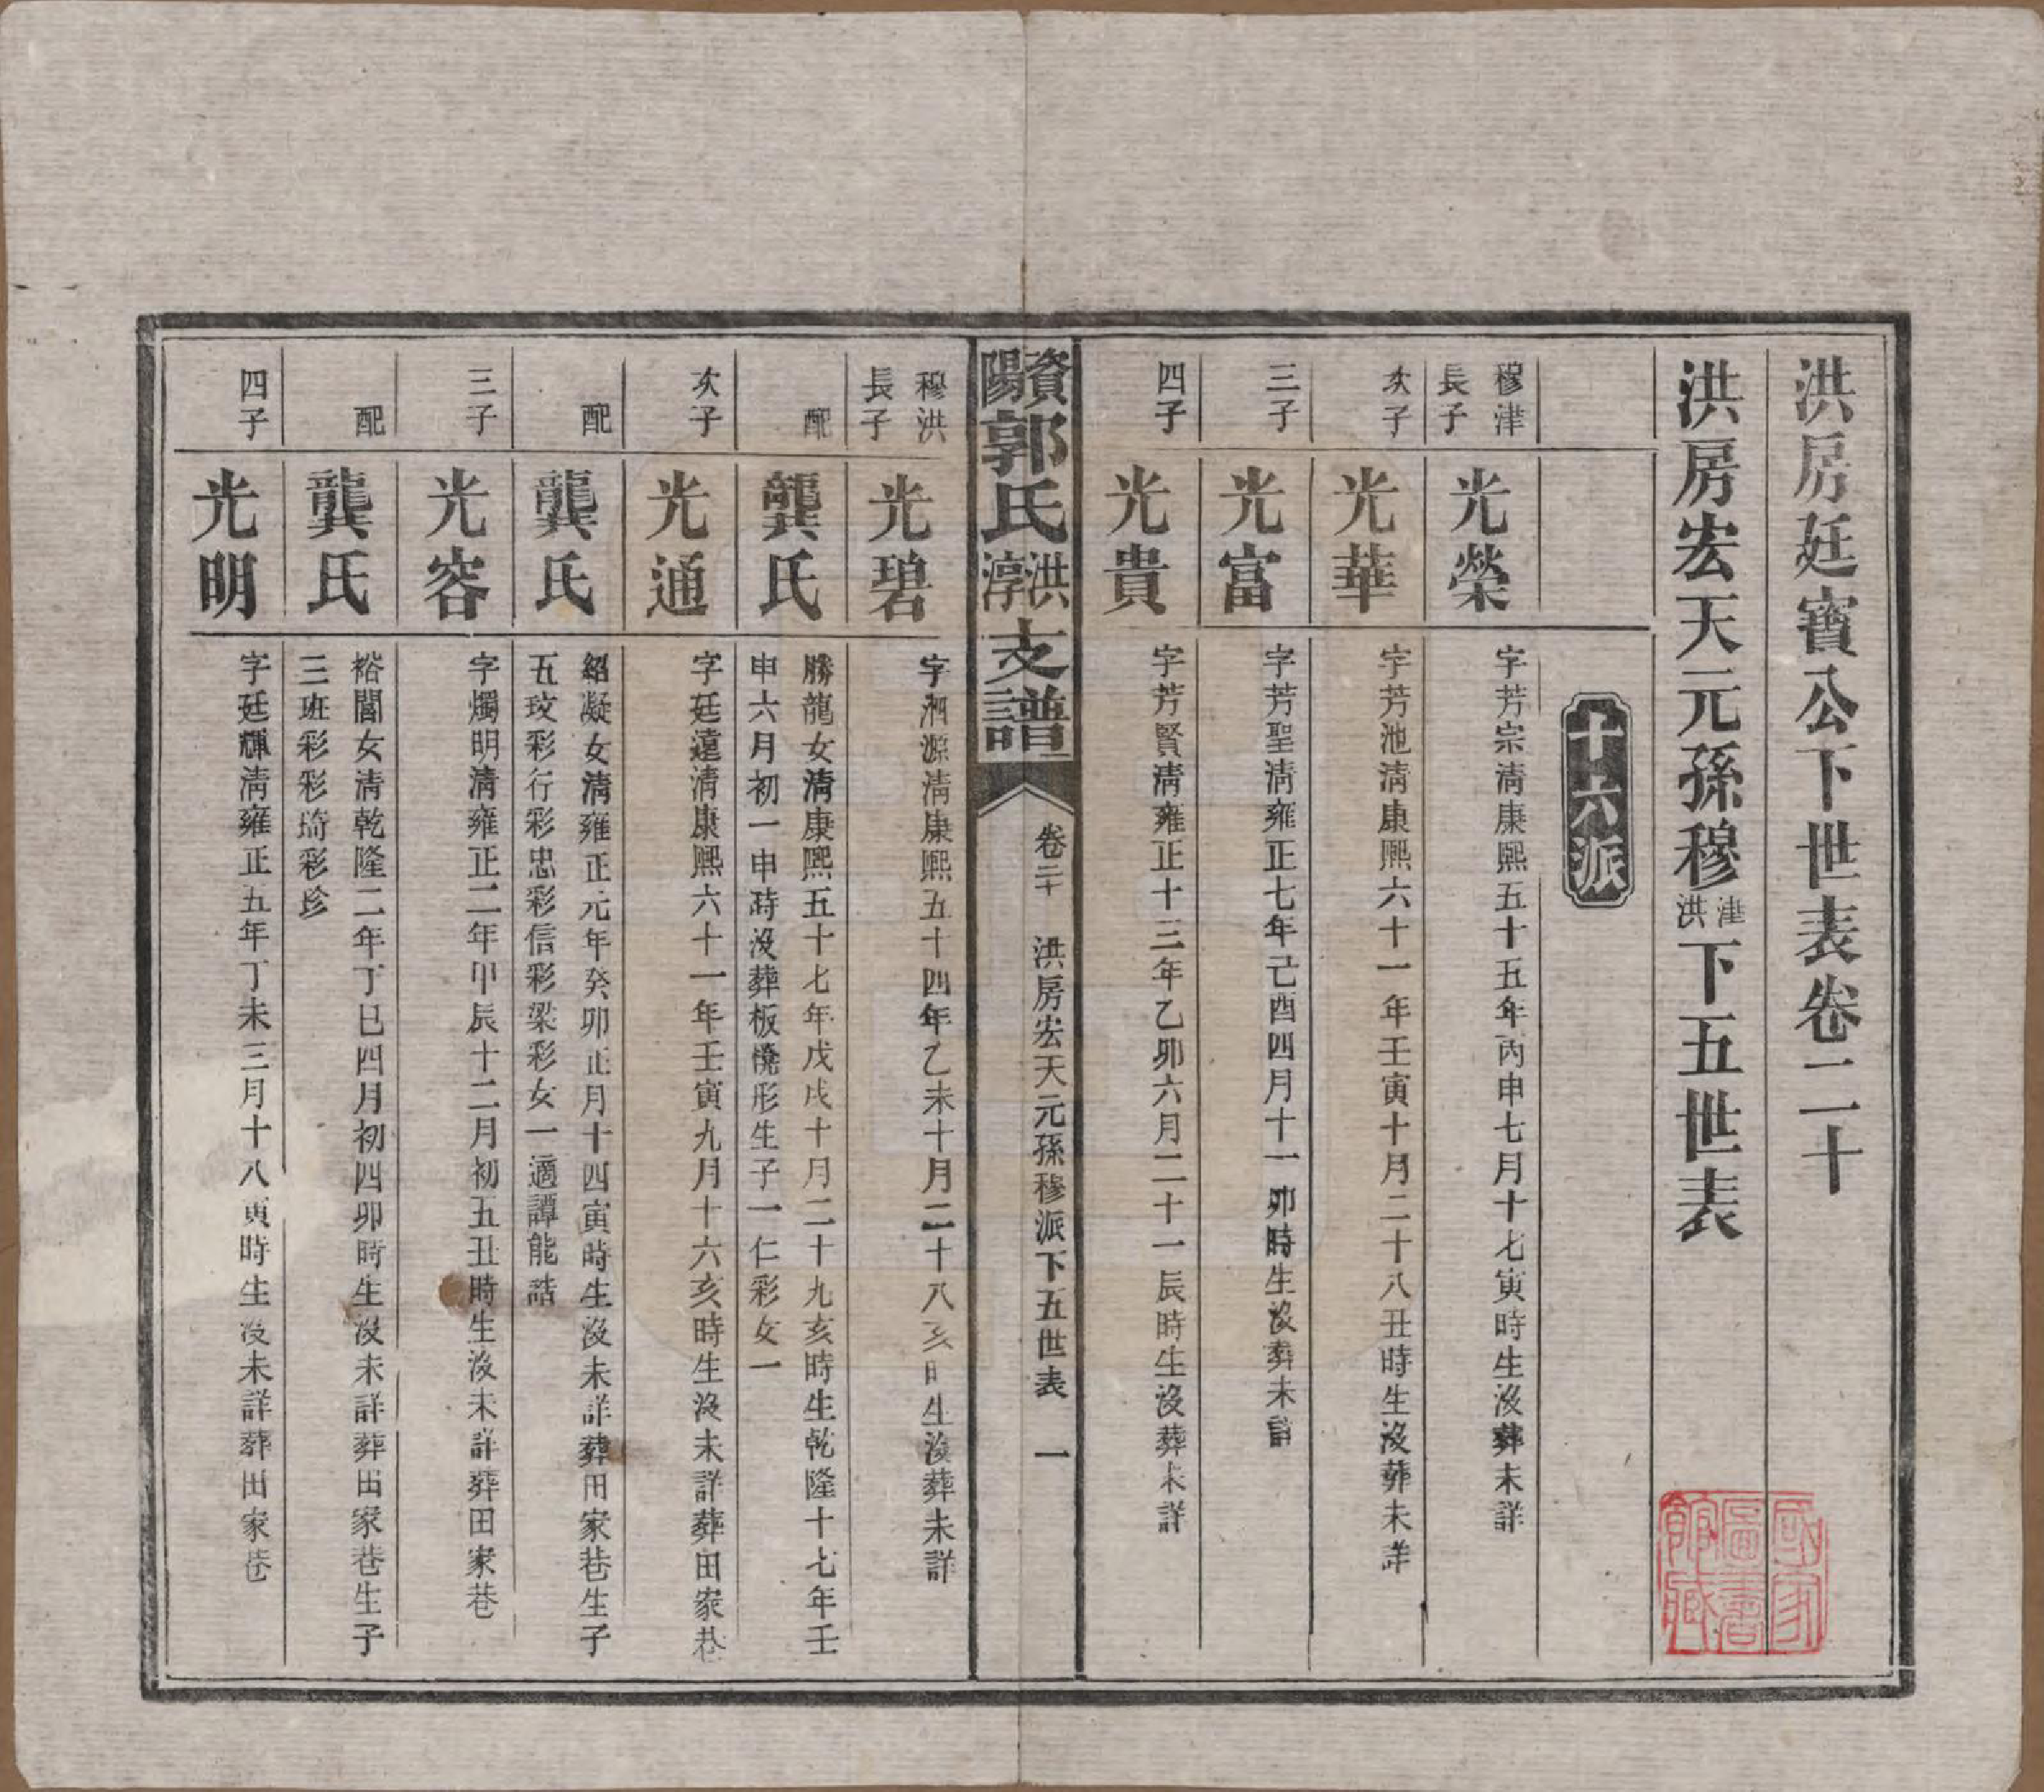 洪房廷寶公下世表卷二十
洪房宏天元孫穆津洪下五世表
十六派
穆津長子
光榮
字芳宗淸康熙五十五年丙申七月十七寅時生沒葬未詳
次子
光華
字芳池淸康熙六十一年壬寅十月二十八丑時生沒葬未詳
三子
光富
字芳聖淸雍正七年己酉四月十一卯時生沒葬未詳
四子
光貴
字芳賢淸雍正十三年乙卯六月二十一辰時生沒葬未詳
資陽郭氏洪淳支譜
卷二十
洪房宏天元孫穆派下五世表
一
穆洪長子
光碧
字泗源淸康熙五十四年乙未十月二十八亥時生沒葬未詳
配
龔氏
勝龍女淸康熙五十七年戊戌十月二十九亥時生乾隆十七年壬
申六月初一申時沒葬板凳形生子一仁彩女一
次子
光通
字廷遠淸康熙六十一年壬寅九月十六亥時生沒未詳葬田家巷
配
龔氏
紹凝女淸雍正元年癸卯正月十四寅時生沒未詳葬田家巷生子
五玟彩行彩忠彩信彩梁彩女一適譚能誥
三子
光容
字燭明淸雍正二年甲辰十二月初五丑時生沒未詳葬田家巷
配
龔氏
裕閶女淸乾隆二年丁巳四月初四卯時生沒未詳葬田家巷生子
三班彩彩琦彩珍
四子
光明
字廷輝淸雍正五年丁未三月十八寅時生沒未詳葬田家巷
國家圖書館藏